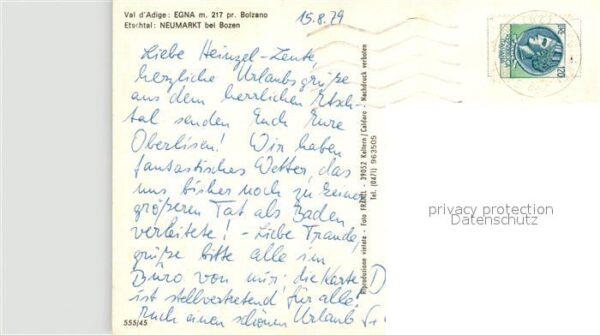 Val d'Adige: EGNA m. 217 pr. Bolzano
Etschtal: NEUMARKT bei Bozen
15.8.79
Liebe Heinzel-Leute,
herzliche Urlaubsgrüße
aus dem herrlichen Etsch-
tal senden Euch Eure
Oberlisen! Wir haben
fantastisches Wetter, das
uns bisher noch zu keiner
größeren Tat als Baden
verleitete! - Liebe Traudel,
grüße bitte alle im
Büro von mir; die Karte
ist stellvertretend für alle!
Euch einen schönen Urlaub
555/45
Riproduzione vietata - Foto FRANZL - 39052 Kaltern/Caldaro - Nachdruck verboten
Tel. (0471) 963505
120
privacy protection
Datenschutz